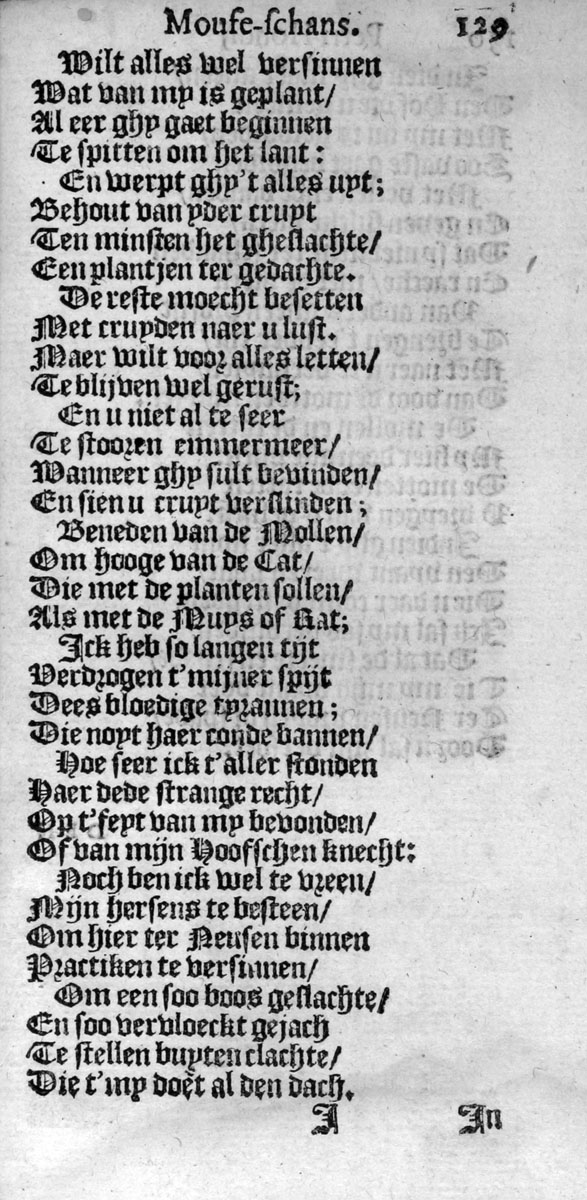 Mouſe-ſchans. 129
Wilt alles wel verſinnen
Wat van my is geplant/
Al eer ghy gaet beginnen
Te ſpitten om het lant:
En werpt ghy't alles uyt;
Behout van yder cruyt
Ten minſten het gheſlachte/
Een plantjen ter gedachte.
De reſte moecht beſetten
Met cruyden naer u luſt.
Maer wilt vooꝛ alles letten/
Te blijven wel geruſt;
En u niet al te ſeer
Te ſtooꝛen emmermeer/
Wanneer ghy ſult bevinden/
En ſien u cruyt verſlinden;
Beneden van de Mollen/
Om hooge van de Cat/
Die met de planten ſollen/
Als met de Muys of Rat;
Ick heb ſo langen tijt
Verdꝛogen t'mijner ſpijt
Dees bloedige tyꝛannen;
Die noyt haer conde bannen/
Hoe ſeer ick t'aller ſtonden
Haer dede ſtrange recht/
Op t'feyt van my bevonden/
Of van mijn Hooſſchen knecht:
Noch ben ick wel te vꝛeen/
Mijn herſens te beſteen/
Om hier ter Neuſen binnen
Pꝛactiken te verſinnen/
Om een ſoo boos geſlachte/
En ſoo vervloeckt gejach
Te ſtellen buyten clachte/
Die t'my doet al den dach.
I In